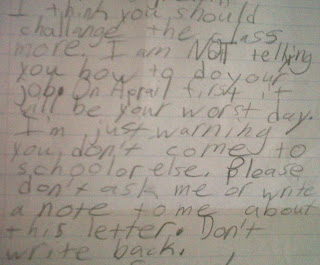 I think you should
challange the class
more. I am NOT telling
you how to do your
job. On Aprail first it
will be your worst day.
I'm just warning
you don't come to
school or else. Please
don't ask me or write
a note to me about
this letter. Don't
write back.